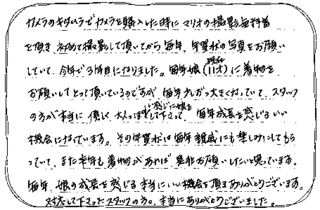 カメラのキタムラでカメラを購入した時にマリオの撮影無料券
を頂き、初めて撮影して頂いてから毎年、年賀状の写真をお願い
していて、今年で 年目になりました。毎年娘(11才)に着物を
お願いしてとって頂いているのですが 毎年 大きくなっていて、スタッフ
の方が本当に優しく 、毎年成長を感じるいい
機会になっています。その年賀状は毎年親戚にも楽しみにしてもら
っていて、また来年も着物があれば是非お願いしたいと思っています。
毎年、娘の成長を感じる本当にいい機会を頂きありがとうございます。
対応して下さったスタッフの方、本当にありがとうございました。